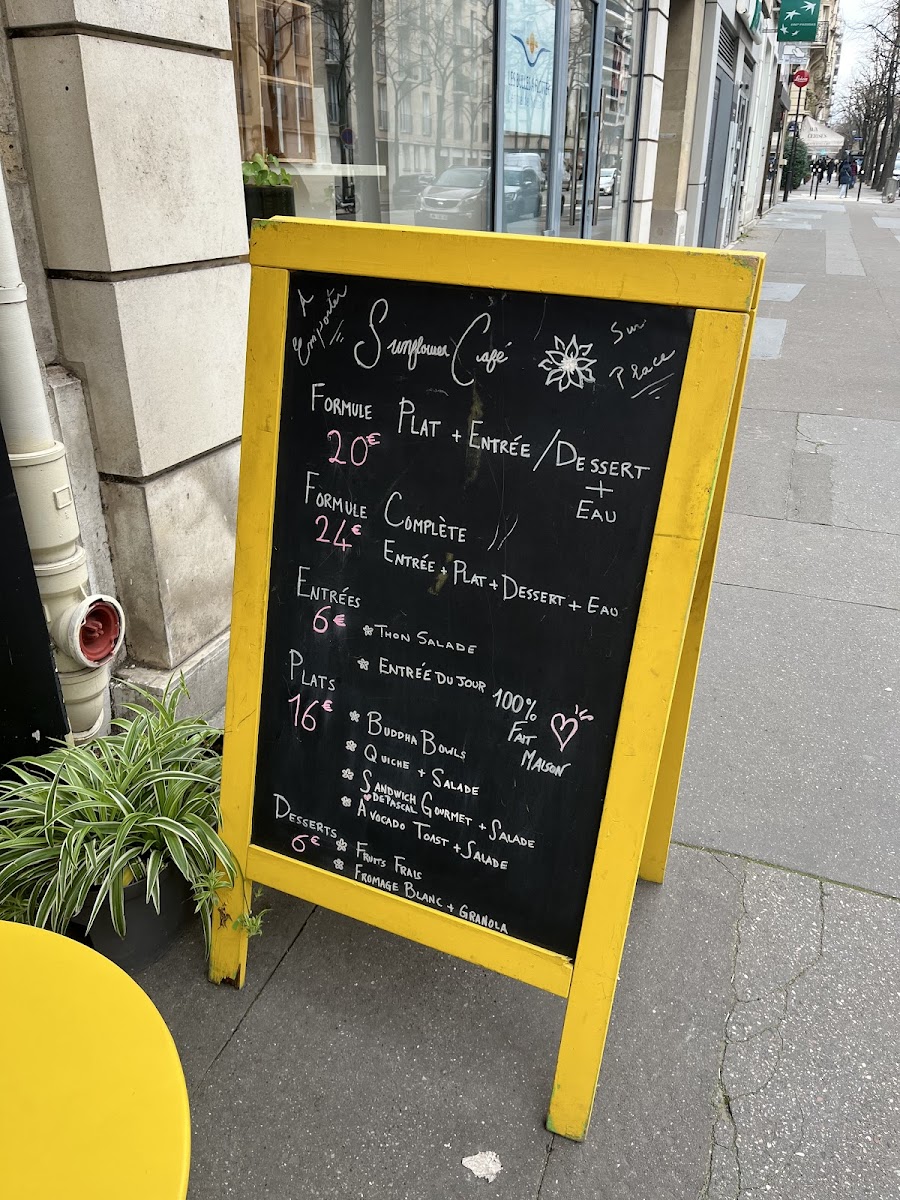 À Emporter
Sunflower Café
Sur Place
FORMULE
20€
PLAT + ENTRÉE / DESSERT
+
EAU
FORMULE
24€
COMPLÈTE
ENTRÉE + PLAT + DESSERT + EAU
ENTRÉES
6€
THON SALADE
ENTRÉE DU JOUR
100%
FAIT
MAISON
PLATS
16€
BUDDHA BOWLS
QUICHE + SALADE
SANDWICH GOURMET + SALADE
DE PASCAL
AVOCADO TOAST + SALADE
DESSERTS
6€
FRUITS FRAIS
FROMAGE BLANC + GRANOLA